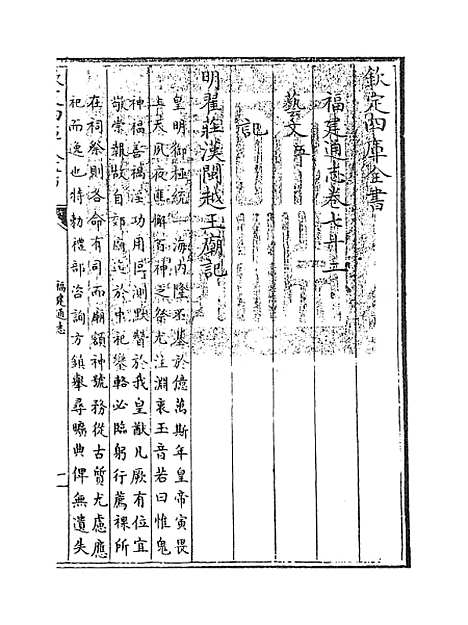 欽定四庫全書
福建通志卷七十五
藝文
記
明翟莊漢閩越王廟記
皇明御極統一海內隆平基於億萬斯年皇帝寅畏
上天夙夜匪懈百神之祭尤注淵衷玉音若曰惟鬼
神福善禍淫功用叵測默贊於我皇猷凡厥有位宜
敬崇報故自郊廟迄於中祀鑾輅必臨躬行薦祼所
在祠祭則各命有司而廟額神號務從古質尤慮應
祀而逸也特勅禮部咨詢方鎮舉尋曠典俾無遺失
福建通志
一